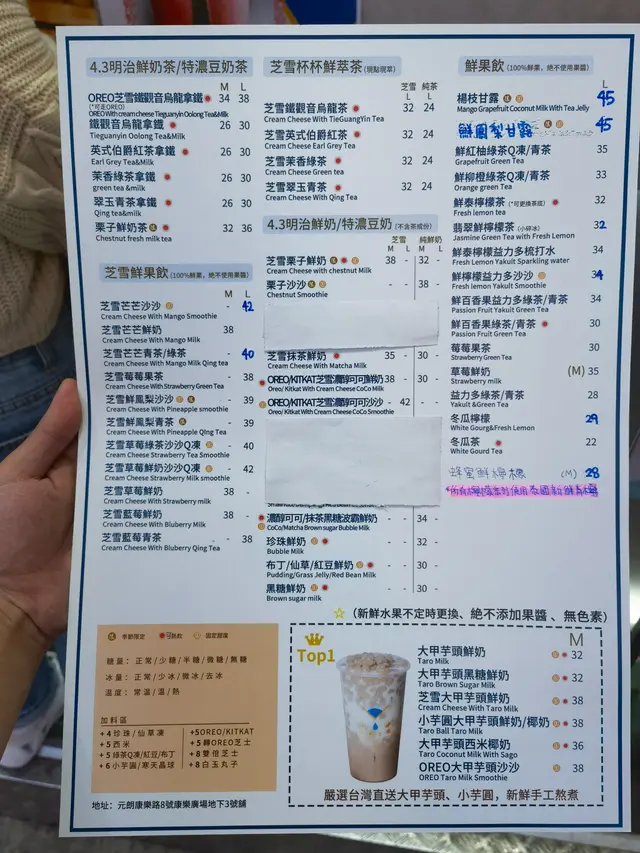 4.3明治鮮奶茶/特濃豆奶茶
M L
OREO芝雪鐵觀音烏龍拿鐵 34 38
(*可走OREO)
OREO With cream cheese Tieguanyin Oolong Tea&Milk
鐵觀音烏龍拿鐵 26 30
Tieguanyin Oolong Tea&Milk
英式伯爵紅茶拿鐵 26 30
Earl Grey Tea&Milk
茉香綠茶拿鐵 26 30
green tea &milk
翠玉青茶拿鐵 26 30
Qing tea&milk
栗子鮮奶茶 32 36
Chestnut fresh milk tea
芝雪鮮果飲(100%鮮果，絕不使用果醬)
M L
芝雪芒芒沙沙 - 42
Cream Cheese With Mango Smoothie
芝雪芒芒鮮奶 38
Cream Cheese With Mango Milk
芝雪芒芒青茶/綠茶 - 40
Cream Cheese With Mango Milk Qing tea
芝雪莓莓果茶 - 38
Cream Cheese With Strawberry Green Tea
芝雪鮮鳳梨沙沙 - 39
Cream Cheese With Pineapple smoothie
芝雪鮮鳳梨青茶 - 39
Cream Cheese With Pineapple Qing Tea
芝雪草莓綠茶沙沙Q凍 - 40
Cream Cheese Strawberry Tea Smoothie
芝雪草莓鮮奶沙沙Q凍 - 42
Cream Cheese Strawberry Milk smoothie
芝雪草莓鮮奶 38 -
Cream Cheese With Strawberry milk
芝雪藍莓鮮奶 38 -
Cream Cheese With Bluberry Milk
芝雪藍莓青茶 - 38
Cream Cheese With Bluberry Qing Tea
芝雪杯杯鮮萃茶(現點現萃)
芝雪 純茶
L L
芝雪鐵觀音烏龍茶 32 24
Cream Cheese With TieGuangYin Tea
芝雪英式伯爵紅茶 32 24
Cream Cheese Earl Grey Tea
芝雪茉香綠茶 32 24
Cream Cheese Green tea
芝雪翠玉青茶 32 24
Cream Cheese With Qing Tea
4.3明治鮮奶/特濃豆奶(不含茶成份)
芝雪 純鮮奶
M L M L
芝雪栗子鮮奶 38 - 32 -
Cream Cheese with chestnut Milk
栗子沙沙 - - 38 -
Chestnut Smoothie
芝雪抹茶鮮奶 35 - 30 -
Cream Cheese With Matcha Milk
OREO/KITKAT芝雪濃醇可可鮮奶 38 - 30 -
Oreo/ Kitkat With Cream Cheese CoCo Milk
OREO/KITKAT芝雪濃醇可可沙沙 - 42 - -
Oreo/ Kitkat With Cream Cheese CoCo Smoothie
濃醇可可/抹茶黑糖波霸鮮奶 - - 34 -
CoCo/Matcha Brown sugar Bubble Milk
珍珠鮮奶 - - 32 -
Bubble Milk
布丁/仙草/紅豆鮮奶 - - 30 -
Pudding/Grass Jelly/Red Bean Milk
黑糖鮮奶 - - 30 -
Brown sugar milk
鮮果飲(100%鮮果，絕不使用果醬)
L
楊枝甘露 45
Mango Grapefruit Coconut Milk With Tea Jelly
甘露 45
鮮紅柚綠茶Q凍/青茶 35
Grapefruit Green Tea
鮮柳橙綠茶Q凍/青茶 33
Orange green Tea
鮮泰檸檬茶(*可更換茶底) 32
Fresh lemon tea
翡翠鮮檸檬茶(小碎冰) 32
Jasmine Green Tea with Fresh Lemon
鮮泰檸檬益力多梳打水 34
Fresh Lemon Yakult Sparkling water
鮮檸檬益力多沙沙 34
Fresh lemon Yakult Smoothie
鮮百香果益力多綠茶/青茶 34
Passion Fruit Yakult Green Tea
鮮百香果綠茶/青茶 30
Passion Fruit Green Tea
莓莓果茶 30
Strawberry Green Tea
草莓鮮奶 (M) 35
Strawberry milk
益力多綠茶/青茶 28
Yakult &Green Tea
冬瓜檸檬 29
White Gourg&Fresh Lemon
冬瓜茶 22
White Gourd Tea
蜂蜜鮮檸檬 (M) 28
☆ (新鮮水果不定時更換、絕不添加果醬、無色素)
季節限定 可熱飲 固定甜度
糖量: 正常/少糖/半糖/微糖/無糖
冰量: 正常/少冰/微冰/去冰
溫度: 常溫/溫/熱
加料區
+4 珍珠/仙草凍
+5 西米
+5 綠茶Q凍/紅豆/布丁
+6 小芋圓/寒天晶球
+5OREO/KITKAT
+5轉OREO芝士
+8雙倍芝士
+8白玉丸子
Top1
M
大甲芋頭鮮奶 32
Taro Milk
大甲芋頭黑糖鮮奶 32
Taro Brown Sugar Milk
芝雪大甲芋頭鮮奶 38
Cream Cheese With Taro Milk
小芋圓大甲芋頭鮮奶/椰奶 38
Taro Ball Taro Milk
大甲芋頭西米椰奶 36
Taro Coconut Milk With Sago
OREO大甲芋頭沙沙 38
OREO Taro Milk Smoothie
嚴選台灣直送大甲芋頭、小芋圓，新鮮手工熬煮
地址: 元朗康樂路8號康樂廣場地下3號舖